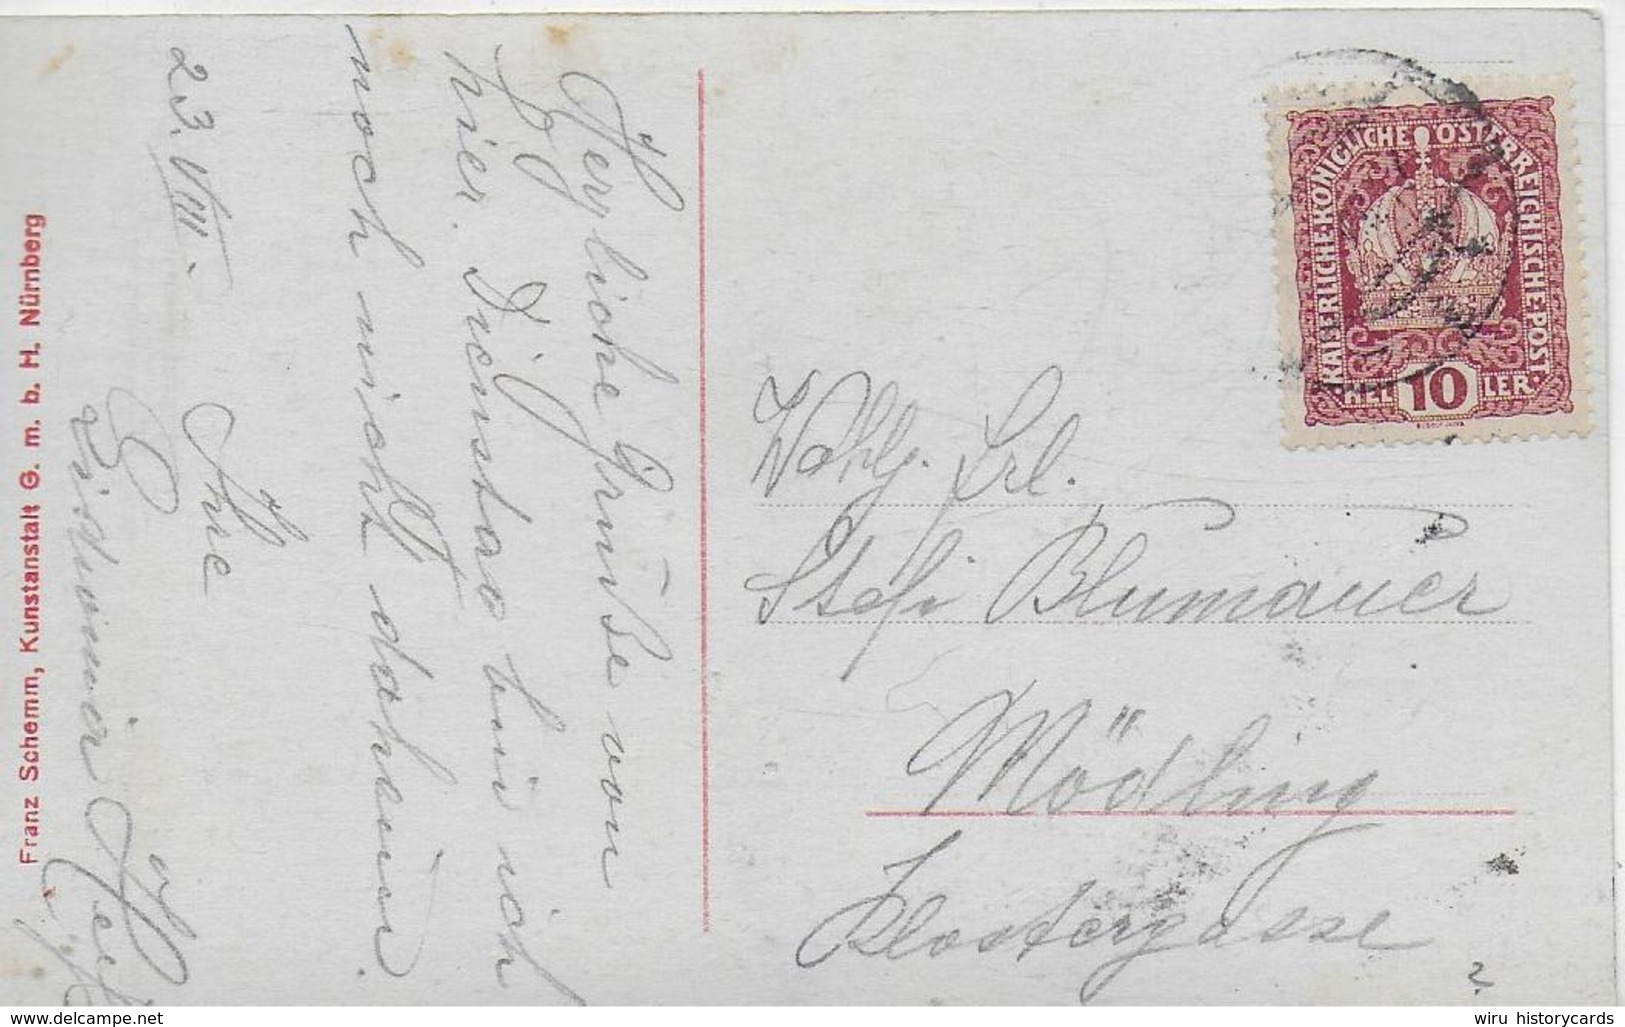 Herzliche Grüße von
hier. Dienstag bin ich
noch nicht daheim.
23. VIII.
Ihre
Franz Schemm, Kunstanstalt G. m. b. H. Nürnberg
KAISERLICHE KÖNIGLICHE ÖSTERREICHISCHE POST
HEL 10 LER
RUDOLF JUNK
Wohlg. Frl.
Stefi Blumauer
Mödling
Klostergasse
2.
wiru historycards
www.delcampe.net